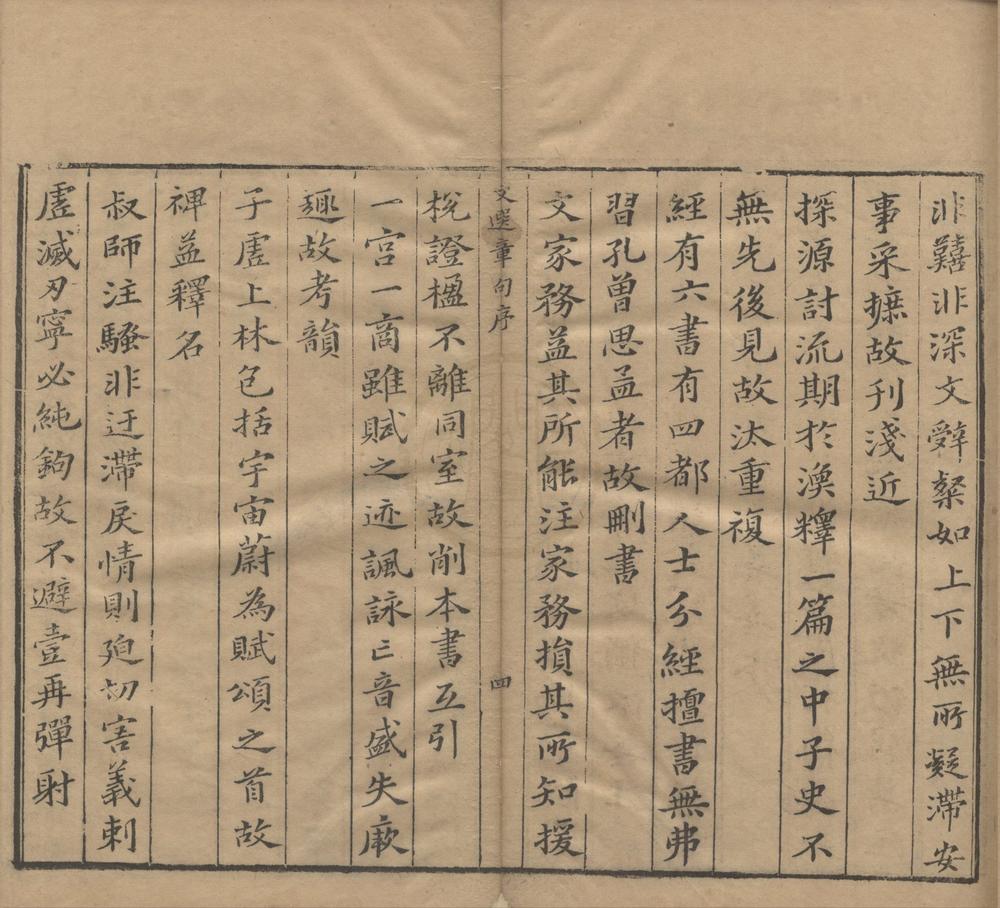 非囏非深文辤粲如上下無所疑滯安
事采摭故刊淺近
探源討流期於渙釋一篇之中子史不
無先後見故汰重複
經有六書有四都人士分經擅書無弗
習孔曾思孟者故刪書
文家務益其所能注家務損其所知援
文選章句序
四
梲證楹不離同室故削本書互引
一宮一商雖賦之迹諷詠亡音盛失厥
趣故考韻
子虛上林包括宇宙蔚為賦頌之首故
裨益釋名
叔師注騷非迂滯戾情則𢌞切害義刺
虛滅刃寧必純鉤故不避壹再彈射